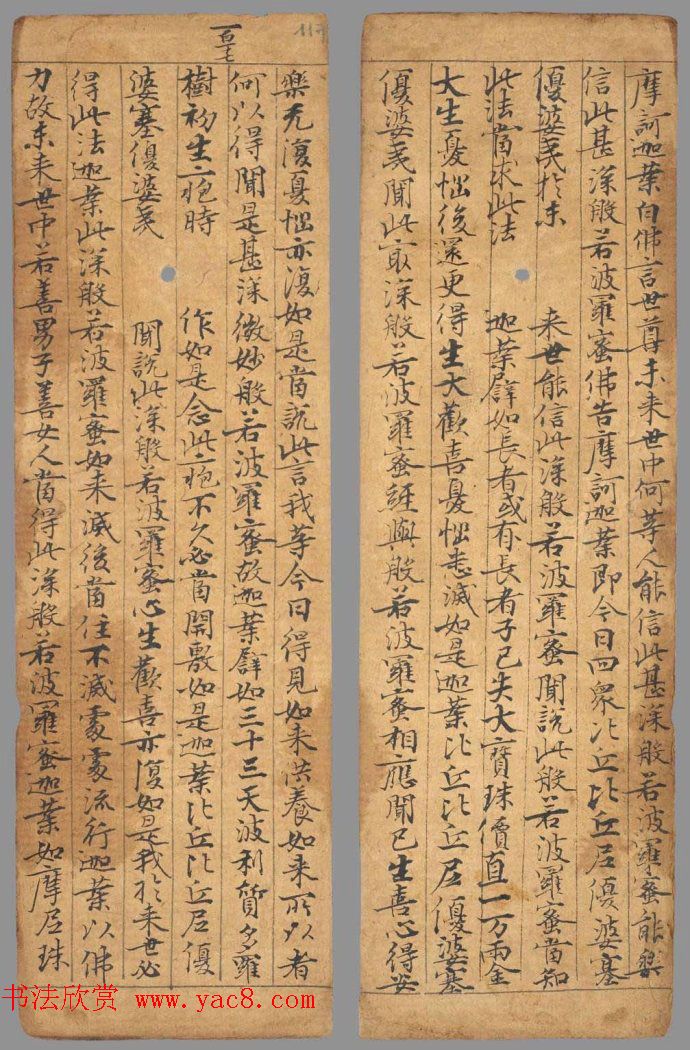 摩訶迦葉白佛言世尊未来世中何等人能信此甚深般若波羅蜜能樂
信此甚深般若波羅蜜佛告摩訶迦葉即今日四衆比丘比丘尼優婆塞
優婆夷於未来世能信此深般若波羅蜜聞說此般若波羅蜜當知
此法當求此法迦葉譬如長者或有長者子已失大寶珠價直一万兩金
大生憂惱後還更得生大歡喜憂惱悉滅如是迦葉比丘比丘尼優婆塞
優婆夷聞此㝡深般若波羅蜜經與般若波羅蜜相應聞已生喜心得安
一百七
117
樂无復憂惱亦復如是當說此言我等今日得見如来洪養如来所以者
何以得聞是甚深微妙般若波羅蜜故迦葉譬如三十三天波利質多羅
樹初生疱時作如是念此疱不久必當開敷如是迦葉比丘比丘尼優
婆塞優婆夷聞說此深般若波羅蜜心生歡喜亦復如是我於来世必
得此法迦葉此深般若波羅蜜如来滅後當住不滅處處流行迦葉以佛
力故未来世中若善男子善女人當得此深般若波羅蜜迦葉如摩尼珠
书法欣赏 www.yac8.com